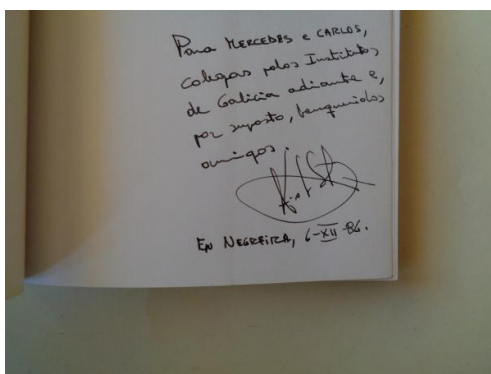 Para MERCEDES e CARLOS,
colegas polos Institutos
de Galicia adiante e,
por suposto, benqueridos
amigos.
EN NEGREIRA, 6-XII-86.